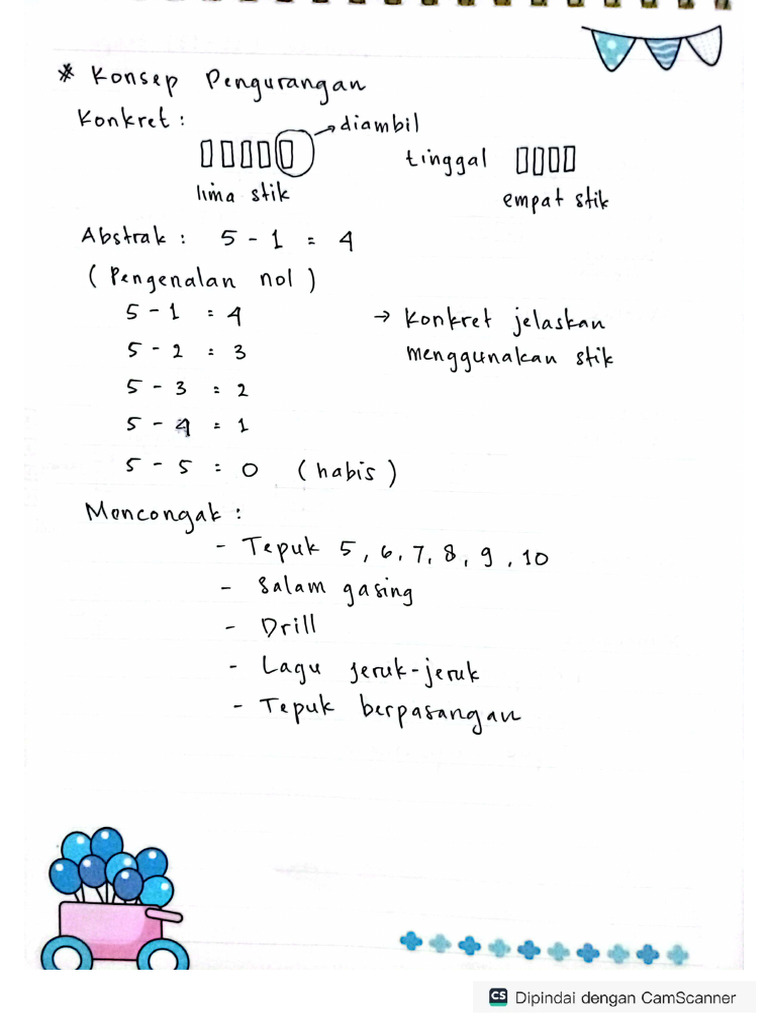 * Konsep Pengurangan
Konkret :
diambil
tinggal
lima stik
empat stik
Abstrak : 5 - 1 = 4
(Pengenalan nol)
5 - 1 = 4 → Konkret jelaskan
5 - 2 = 3 menggunakan stik
5 - 3 = 2
5 - 4 = 1
5 - 5 = 0 (habis)
Mencongak :
- Tepuk 5, 6, 7, 8, 9, 10
- Salam gasing
- Drill
- Lagu jeruk-jeruk
- Tepuk berpasangan
CS Dipindai dengan CamScanner